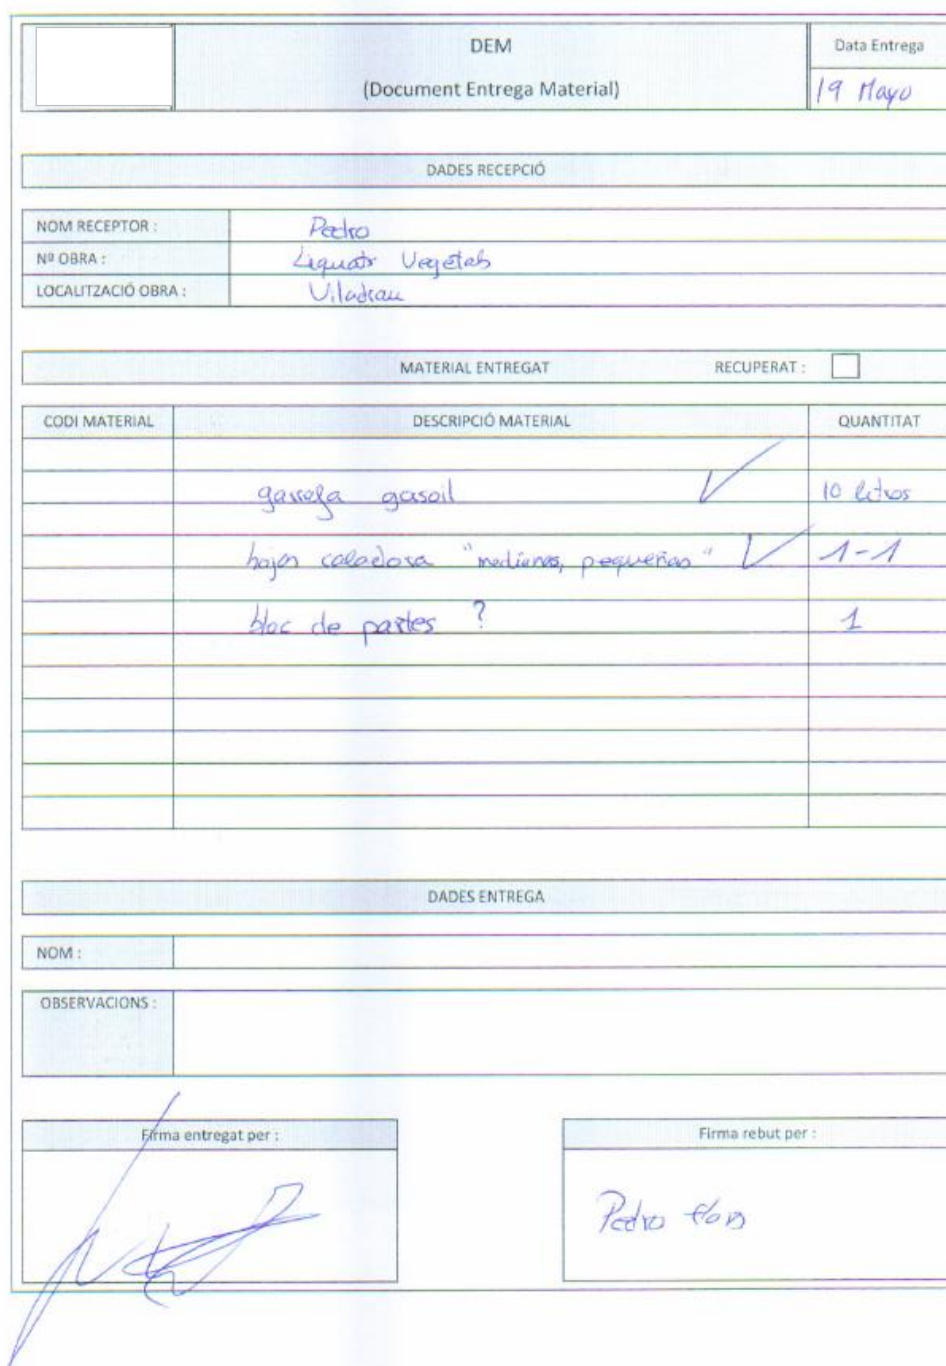 DEM
Data Entrega
(Document Entrega Material)
19 Mayo
DADES RECEPCIÓ
NOM RECEPTOR : Pedro
Nº OBRA : Liquats Vegetals
LOCALITZACIÓ OBRA : Viladrau
MATERIAL ENTREGAT RECUPERAT :
CODI MATERIAL DESCRIPCIÓ MATERIAL QUANTITAT
garrafa gasoil 10 litros
hojas caladora "medianas, pequeñas" 1-1
bloc de partes ? 1
DADES ENTREGA
NOM :
OBSERVACIONS :
Firma entregat per : Firma rebut per :
Pedro